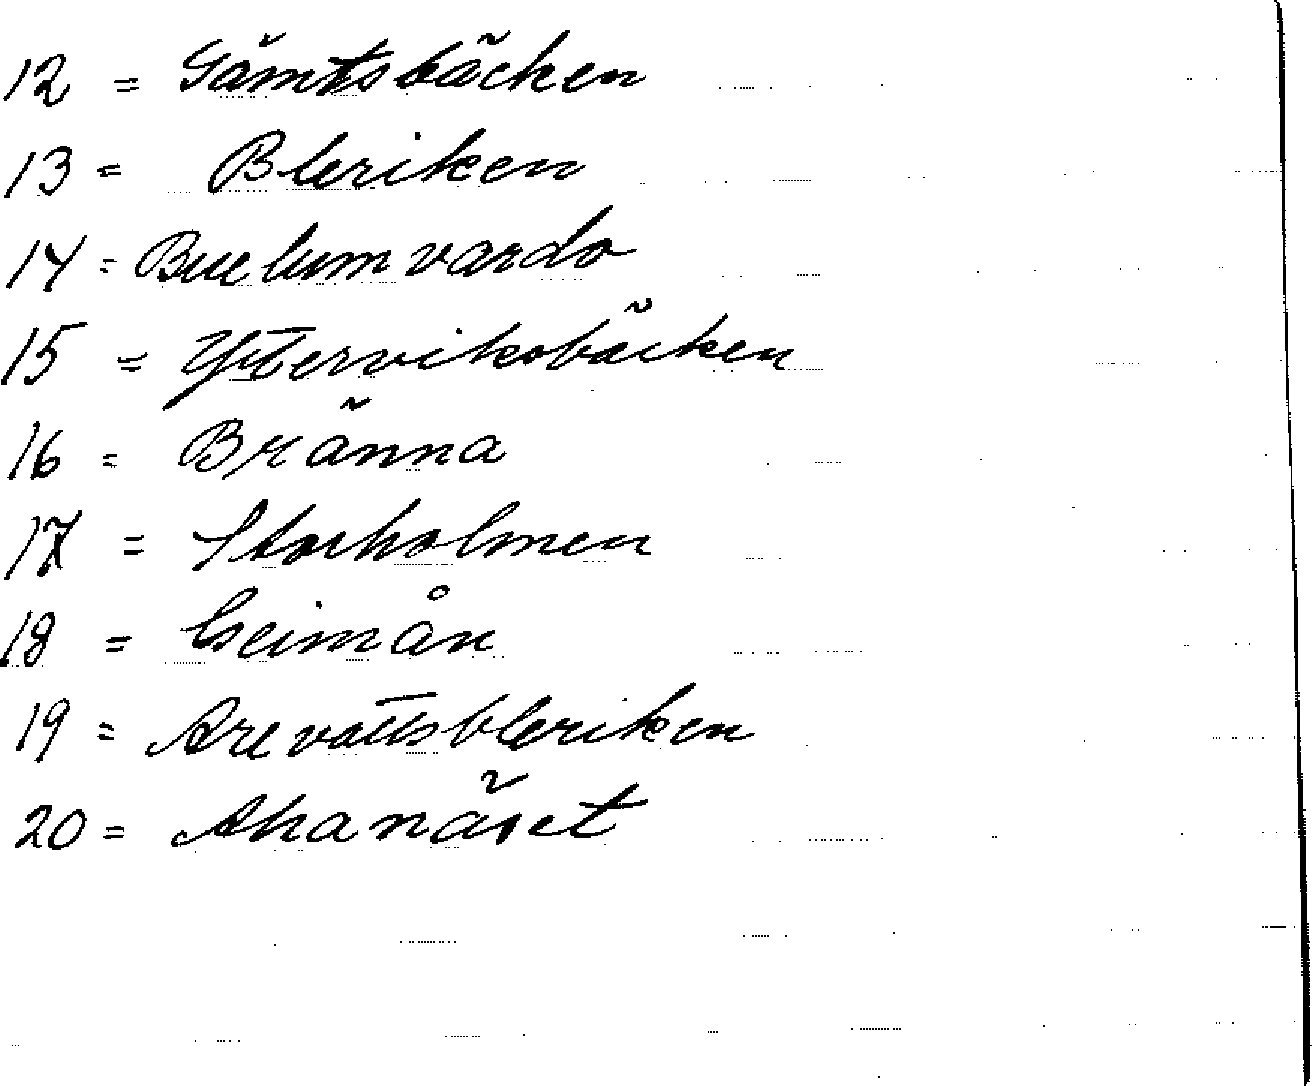 12 = Gämtsbäcken
13 = Bleriken
14 = Buelumvardo
15 = Yterviksbäcken
16 = Bränna
17 = Storholmen
18 = Geimån
19 = Arevattsbleriken
20 = Akanäset